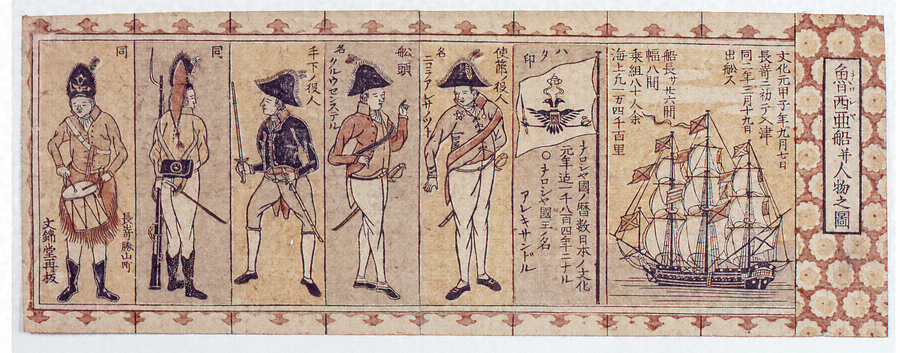 魯西亜船并人物之圖
文化元甲子年九月七日
長嵜ニ初テ入津
同二年三月十九日
出船ス
船長サ廿六間
幅八間
乗組八十人余
海上凡一万四千百里
ハタ印
ヲロシヤ國ノ暦数日本ノ文化
元年迠一千八百四年ニナル
○ヲロシヤ國王名
アレキサンドル
使節ノ役人
名
ニコラアレサノット
船頭
名
クルウセンステル
手下ノ役人
同
同
長嵜勝山町
文錦堂再板